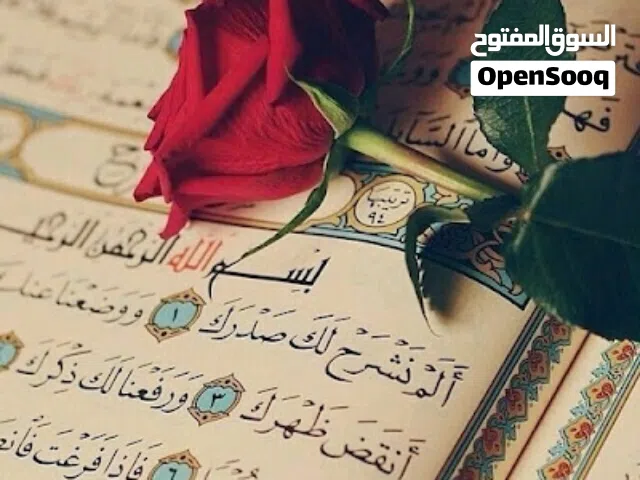 السوق المفتوح
OpenSooq
فها
وأما السآئل
ترتيبها
٩٤
بِسْمِ اللَّهِ الرَّحْمَٰنِ الرَّحِيـ
أَلَمْ نَشْرَحْ لَكَ صَدْرَكَ ١ وَوَضَعْنَا عَنكَ
أَنقَضَ ظَهْرَكَ ٣ وَرَفَعْنَا لَكَ ذِكْرَكَ
٦ فَإِذَا فَرَغْتَ فَانصَ